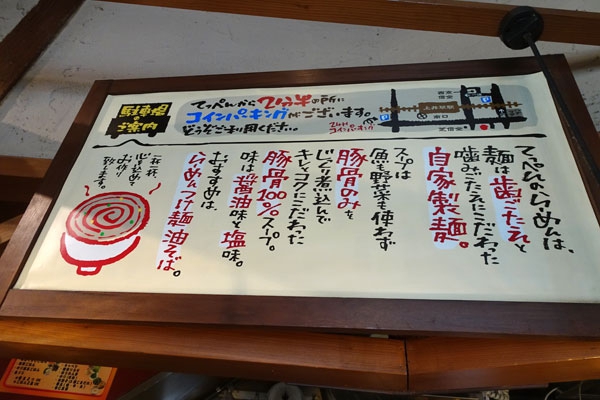 駐車場
ご案内
てっぺんから2分米の所に
コインパーキングがございます。
どうぞご利用ください
上井草駅
南口
てっぺんのらーめんは、
麺は歯ごたえと
噛みごたえにこだわった
自家製麺。
スープは
魚も野菜も使わず
豚骨のみを
じっくり煮込んで
キレとコクにこだわった
豚骨100%スープ。
味は醤油味と塩味。
おすすめは、
らーめん、つけ麺、油そば。
一杯一杯
心を込めて
お作り
致します。